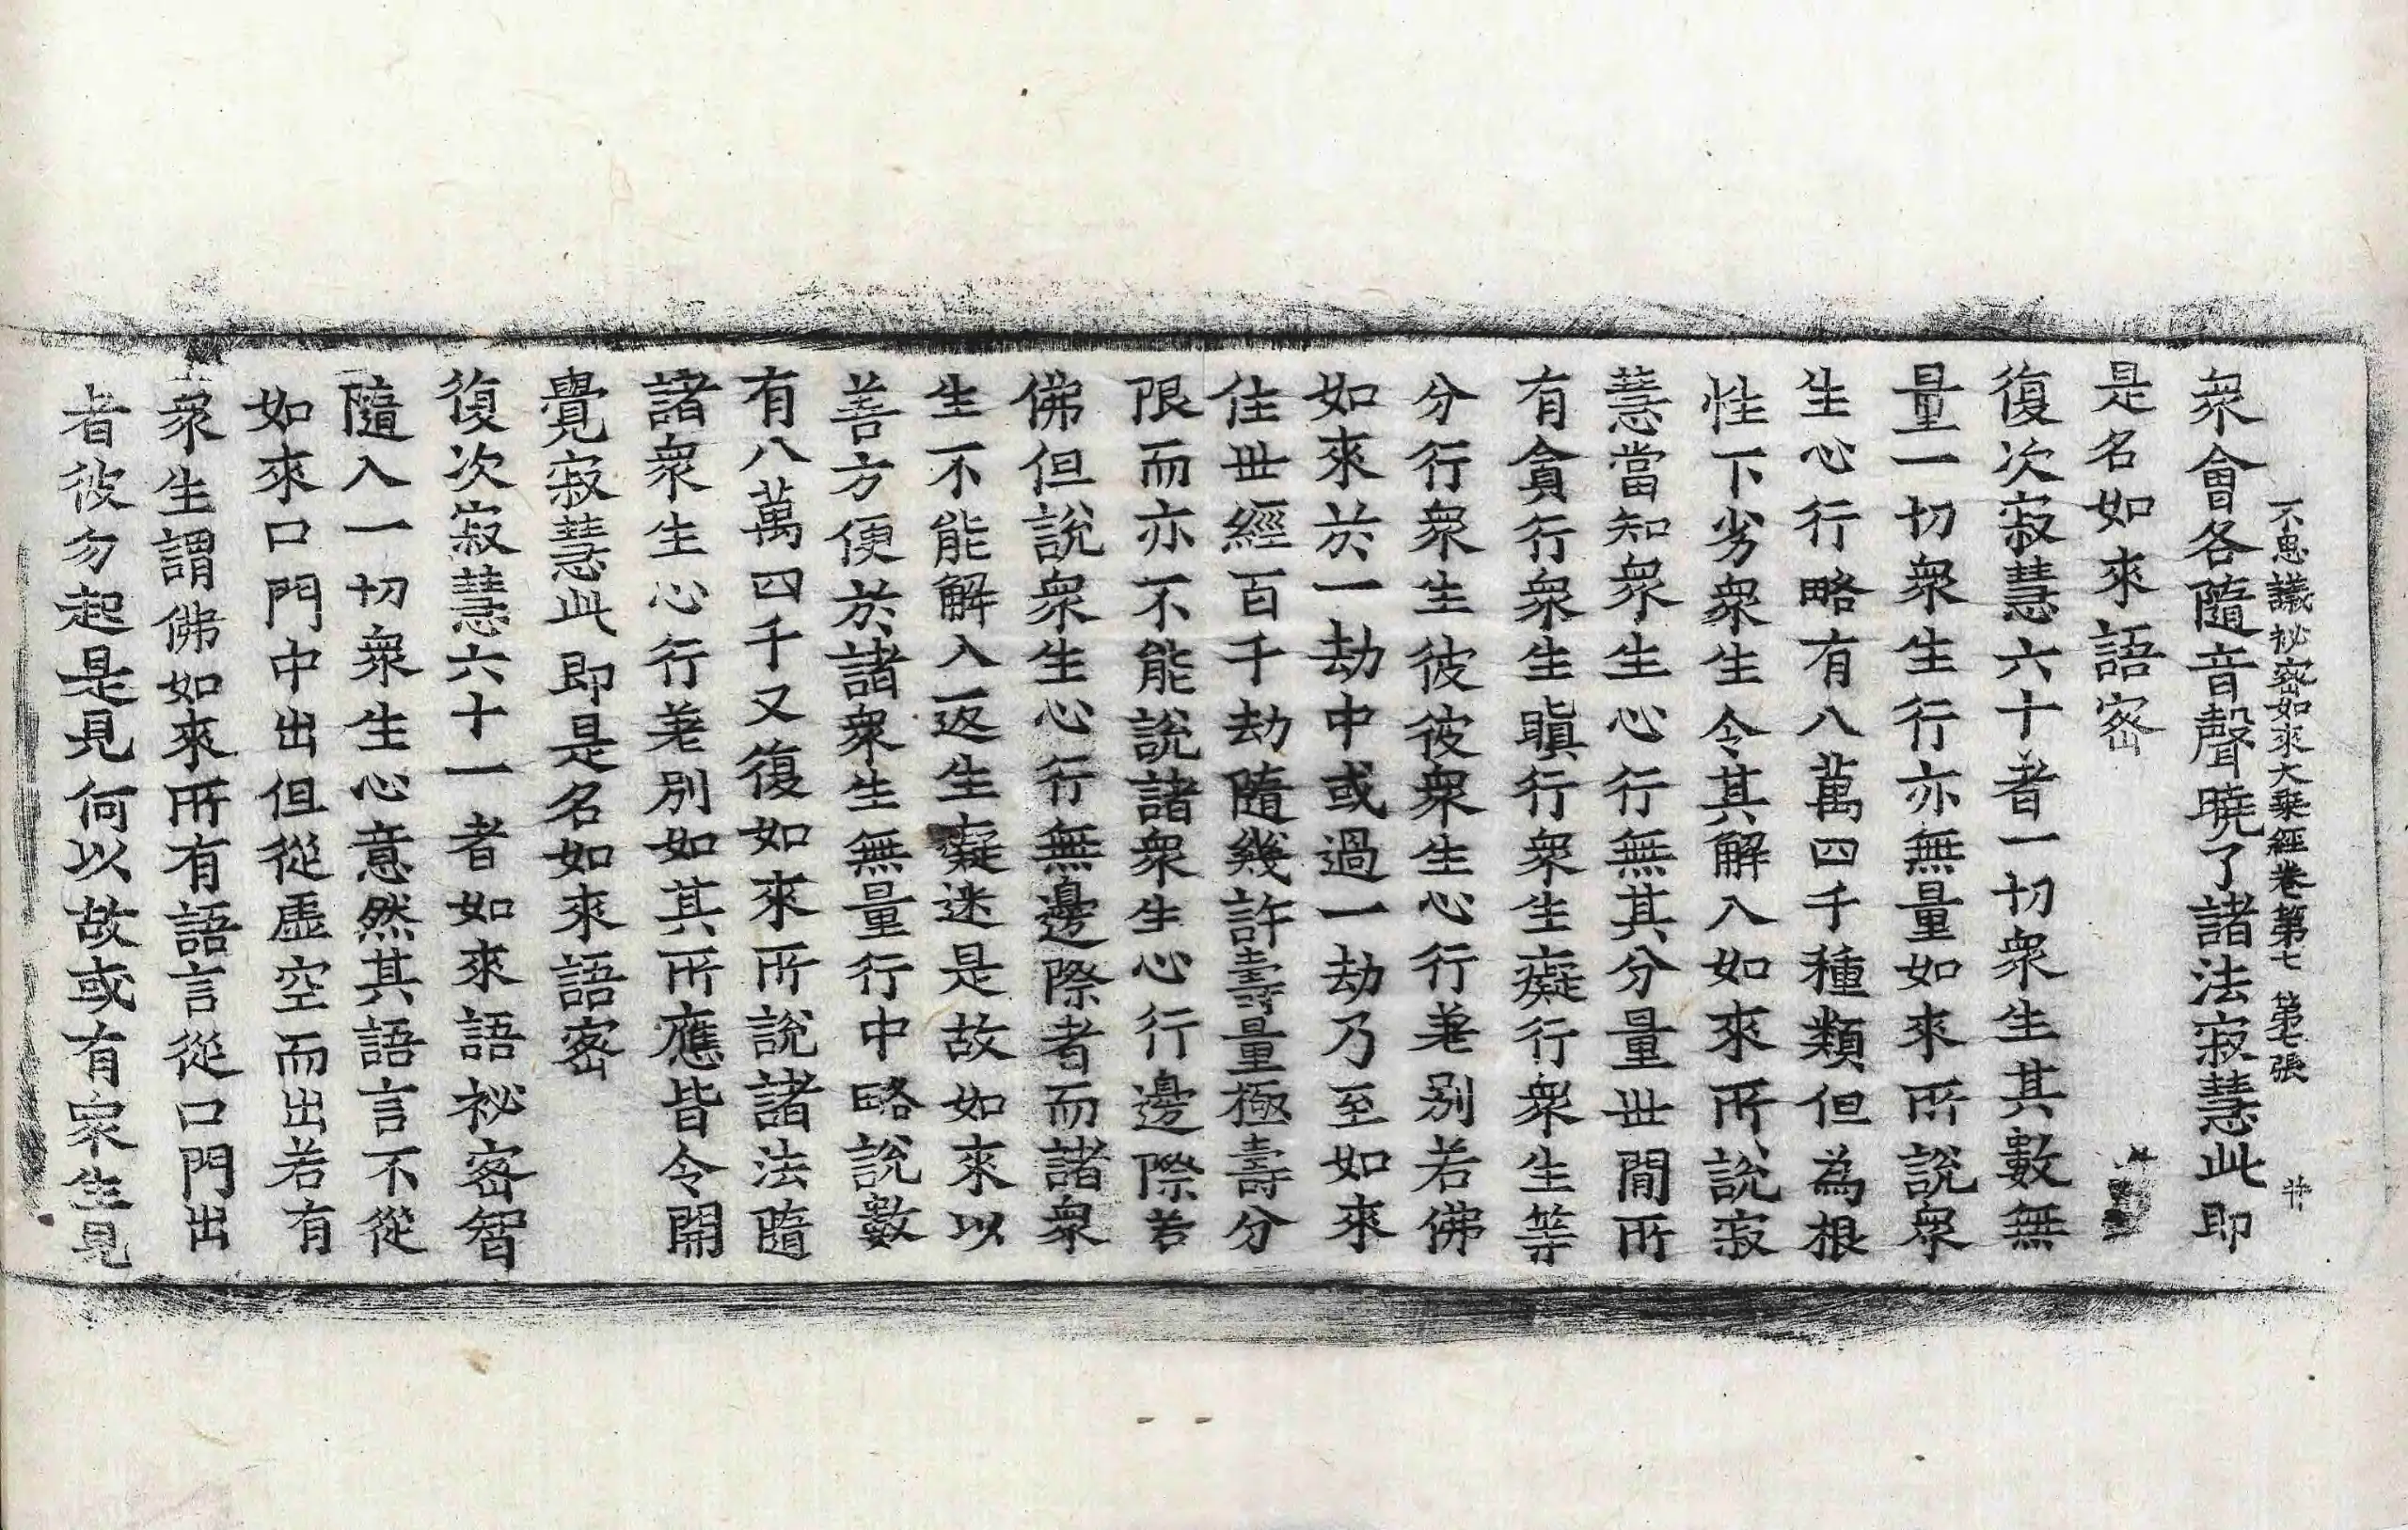 不思議祕密如來大乘經卷第七 第七張 㐥
衆會各隨音聲曉了諸法寂慧此即
是名如來語密
復次寂慧六十者一切衆生其數無
量一切衆生行亦無量如來所說衆
生心行略有八萬四千種類但為根
性下劣衆生令其解入如來所說寂
慧當知衆生心行無其分量世間所
有貪行衆生瞋行衆生癡行衆生等
分行衆生彼彼衆生心行差別若佛
如來於一劫中或過一劫乃至如來
住世經百千劫隨幾許壽量極壽分
限而亦不能說諸衆生心行邊際若
佛但說衆生心行無邊際者而諸衆
生不能解入返生癡迷是故如來以
善方便於諸衆生無量行中略說數
有八萬四千又復如來所說諸法隨
諸衆生心行差別如其所應皆令開
覺寂慧此即是名如來語密
復次寂慧六十一者如來語祕密智
隨入一切衆生心意然其語言不從
如來口門中出但從虛空而出若有
衆生謂佛如來所有語言從口門出
者彼勿起是見何以故或有衆生見